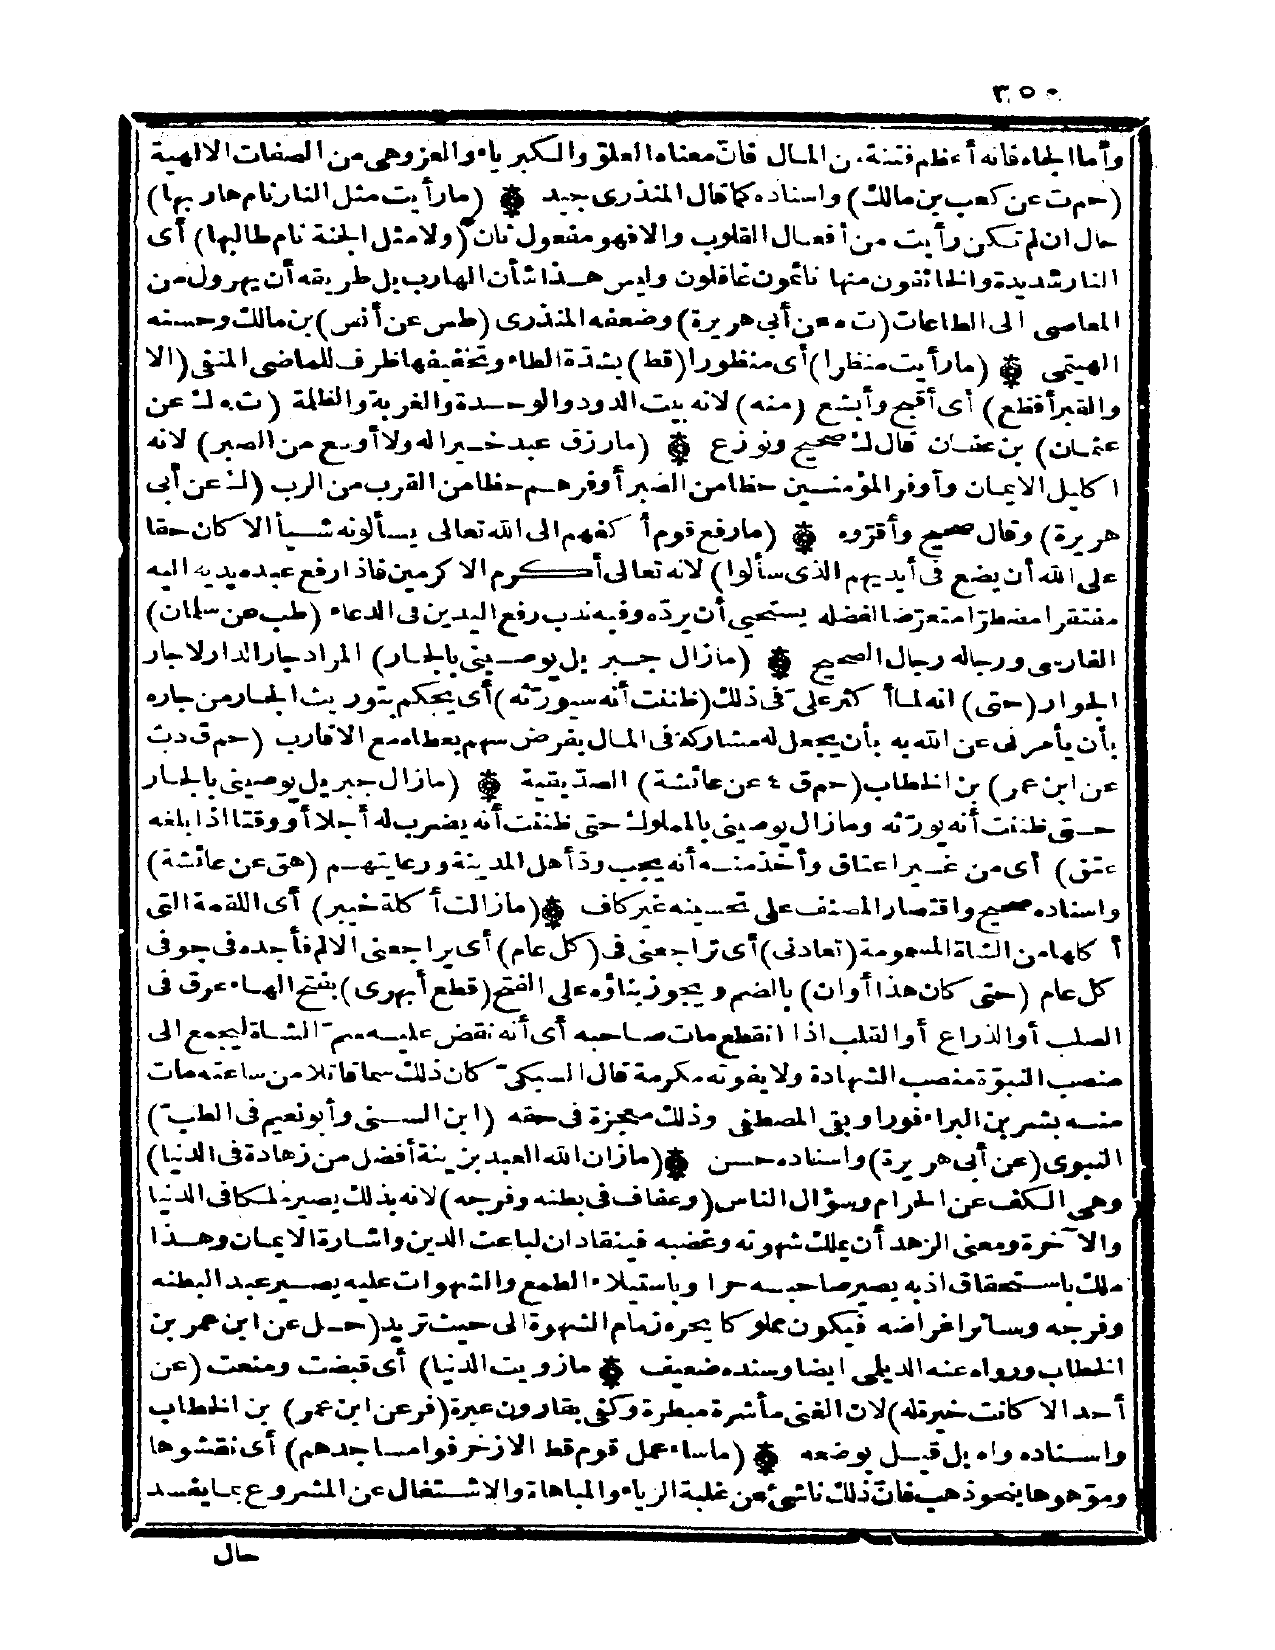 ٣٥٠
وأما الجاه فانه أعظم فتنة من المال فان معناه العلو والكبرياء والعز وهى من الصفات الالهية
(حم ت عن كعب بن مالك) واسناده كما قال المنذرى جيد ۞ (مارأيت مثل النار نام هاربها)
حال ان لم تكن رأيت من أفعال القلوب والا فهو مفعول ثان (ولا مثل الجنة نام طالبها) أى
النار شديدة والخائفون منها نائمون غافلون وليس هذا شأن الهارب بل طريقه أن يهرول من
المعاصى الى الطاعات (ت ه عن أبى هريرة) وضعفه المنذرى (طس عن أنس) بن مالك وحسنه
الهيتمى ۞ (مارأيت منظرا) أى منظورا (قط) بشدة الطاء وتخفيفها ظرف للماضى المنفى (الا
والقبر أفظع) أى أقبح وأبشع (منه) لانه بيت الدود والوحدة والغربة والظلمة (ت ه ك عن
عثمان) بن عفان قال ك صحيح ونوزع ۞ (مارزق عبد خيرا له ولا أوسع من الصبر) لانه
اكليل الايمان وأوفر المؤمنين حظا من الصبر أوفرهم حظا من القرب من الرب (ك عن أبى
هريرة) وقال صحيح وأقروه ۞ (مارفع قوم أكفهم الى الله تعالى يسألونه شيأ الا كان حقا
على الله أن يضع فى أيديهم الذى سألوا) لانه تعالى أكرم الاكرمين فاذا رفع عبده يديه اليه
مفتقرا مضطرّا متعرّضا لفضله يستحيى أن يردّه وفيه ندب رفع اليدين فى الدعاء (طب عن سلمان)
الفارسى ورجاله رجال الصحيح ۞ (مازال جبريل يوصينى بالجار) المراد جار الدار لا جار
الجوار (حتى) انه لما أكثر علىّ فى ذلك (ظننت أنه سيورّثه) أى يحكم بتوريث الجار من جاره
بأن يأمرنى عن الله به بأن يجعل له مشاركة فى المال بفرض سهم يعطاه مع الاقارب (حم ق د ت
عن ابن عمر) بن الخطاب (حم ق ٤ عن عائشة) الصدّيقية ۞ (مازال جبريل يوصينى بالجار
حتى ظننت أنه يورّثه ومازال يوصينى بالمملوك حتى ظننت أنه يضرب له أجلا أو وقتا اذا بلغه
عتق) أى من غير اعتاق وأخذ منه أنه يجب ودّ أهل المدينة ورعايتهم (هق عن عائشة)
واسناده صحيح واقتصار المصنف على تحسينه غير كاف ۞ (مازالت أكلة خيبر) أى اللقمة التى
أكلها من الشاة المسمومة (تعادنى) أى تراجعنى فى (كل عام) أى يراجعنى الالم فأجده فى جوفى
كل عام (حتى كان هذا أوان) بالضم ويجوز بناؤه على الفتح (قطع أبهرى) بفتح الهاء عرق فى
الصلب أو الذراع أو القلب اذا انقطع مات صاحبه أى أنه نقض عليه سمّ الشاة ليجمع الى
منصب النبوّة منصب الشهادة ولا يفوته مكرمة قال السبكىّ كان ذلك سما قاتلا من ساعته مات
منه بشر بن البراء فورا وبقى المصطفى وذلك معجزة فى حقه (ابن السنى وأبو نعيم فى الطبّ)
النبوى (عن أبى هريرة) واسناده حسن ۞ (مازان الله العبد بزينة أفضل من زهادة فى الدنيا)
وهى الكف عن الحرام وسؤال الناس (وعفاف فى بطنه وفرجه) لانه بذلك يصير ملكا فى الدنيا
والآخرة ومعنى الزهد أن يملك شهوته وغضبه فينقادان لباعث الدين واشارة الايمان وهذا
ملك باستحقاق اذ به يصير صاحبه حرا وباستيلاء الطمع والشهوات عليه يصير عبد البطنه
وفرجه وسائر اغراضه فيكون مملوكا يجره زمام الشهوة الى حيث تريد (حل عن ابن عمر بن
الخطاب ورواه عنه الديلى ايضا وسنده ضعيف ۞ مازويت الدنيا) أى قبضت ومنعت (عن
أحد الا كانت خيرة له) لان الغنى مأشرة مبطرة وكفى بقارون عبرة (فر عن ابن عمر) بن الخطاب
واسناده واه بل قيل بوضعه ۞ (ماساء عمل قوم قط الا زخرفوا مساجدهم) أى نقشوها
وموّهوها بنحو ذهب فانّ ذلك ناشئ عن غلبة الرياء والمباهاة والاشتغال عن المشروع بما يفسد
حال